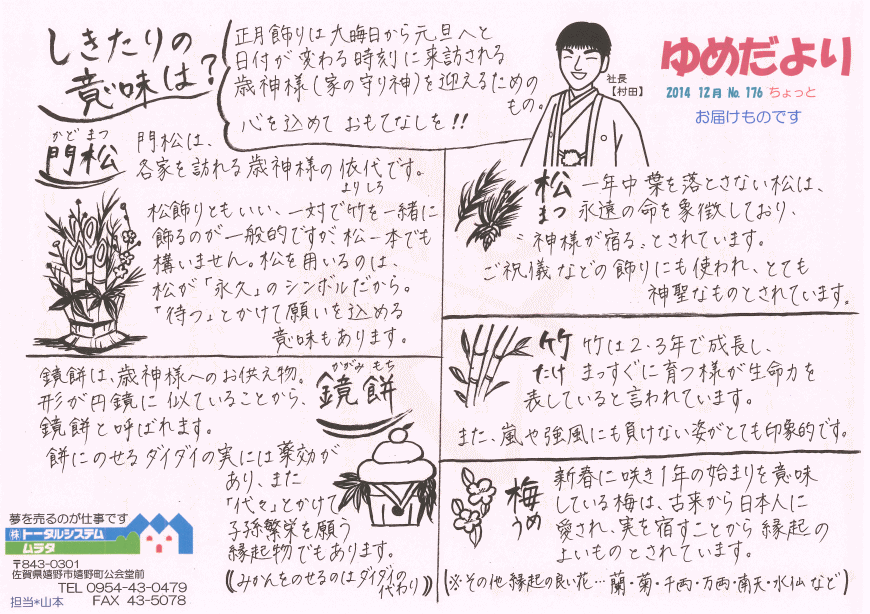 しきたりの
意味は？
正月飾りは大晦日から元旦へと
日付が変わる時刻に来訪される
歳神様(家の守り神)を迎えるための
もの。
心を込めて おもてなしを!!
社長
【村田】
ゆめだより
2014 12月 No. 176 ちょっと
お届けものです
かど まつ
門松
門松は、
各家を訪れる歳神様の依代です。
よりしろ
松飾りともいい、一対で竹を一緒に
飾るのが一般的ですが、松一本でも
構いません。松を用いるのは、
松が「永久」のシンボルだから。
「待つ」とかけて願いを込める
意味もあります。
かがみ もち
鏡餅
鏡餅は、歳神様へのお供え物。
形が円鏡に似ていることから、
鏡餅と呼ばれます。
餅にのせるダイダイの実には薬効が
あり、また
「代々」とかけて
子孫繁栄を願う
縁起物でもあります。
((みかんをのせるのはダイダイの
代わり))
松
まつ
一年中葉を落とさない松は、
永遠の命を象徴しており、
〝神様が宿る〟とされています。
ご祝儀などの飾りにも使われ、とても
神聖なものとされています。
竹
たけ
竹は2・3年で成長し、
まっすぐに育つ様が生命力を
表していると言われています。
また、嵐や強風にも負けない姿がとても印象的です。
梅
うめ
新春に咲き1年の始まりを意味
している梅は、古来から日本人に
愛され、実を宿すことから縁起の
よいものとされています。
(※その他縁起の良い花…蘭・菊・千両・万両・南天・水仙など)
夢を売るのが仕事です
㈱トータルシステム
ムラタ
〒843-0301
佐賀県嬉野市嬉野町公会堂前
TEL 0954-43-0479
FAX 43-5078
担当*山本